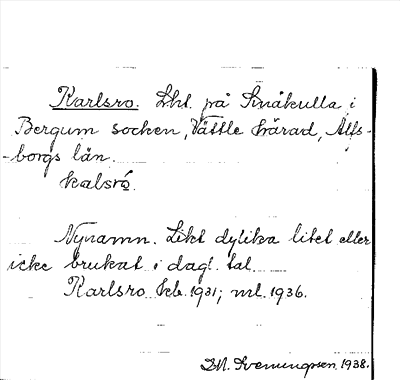 Karlsro. Lht. på Småkulla i
Bergum socken, Vättle härad, Älfs-
-borgs län.
kalsro
Nynamn. Likt dylika litet eller
icke brukat i dagl. tal.
Karlsro kb. 1931; ml. 1936.
D.N. Svenungsson, 1938.